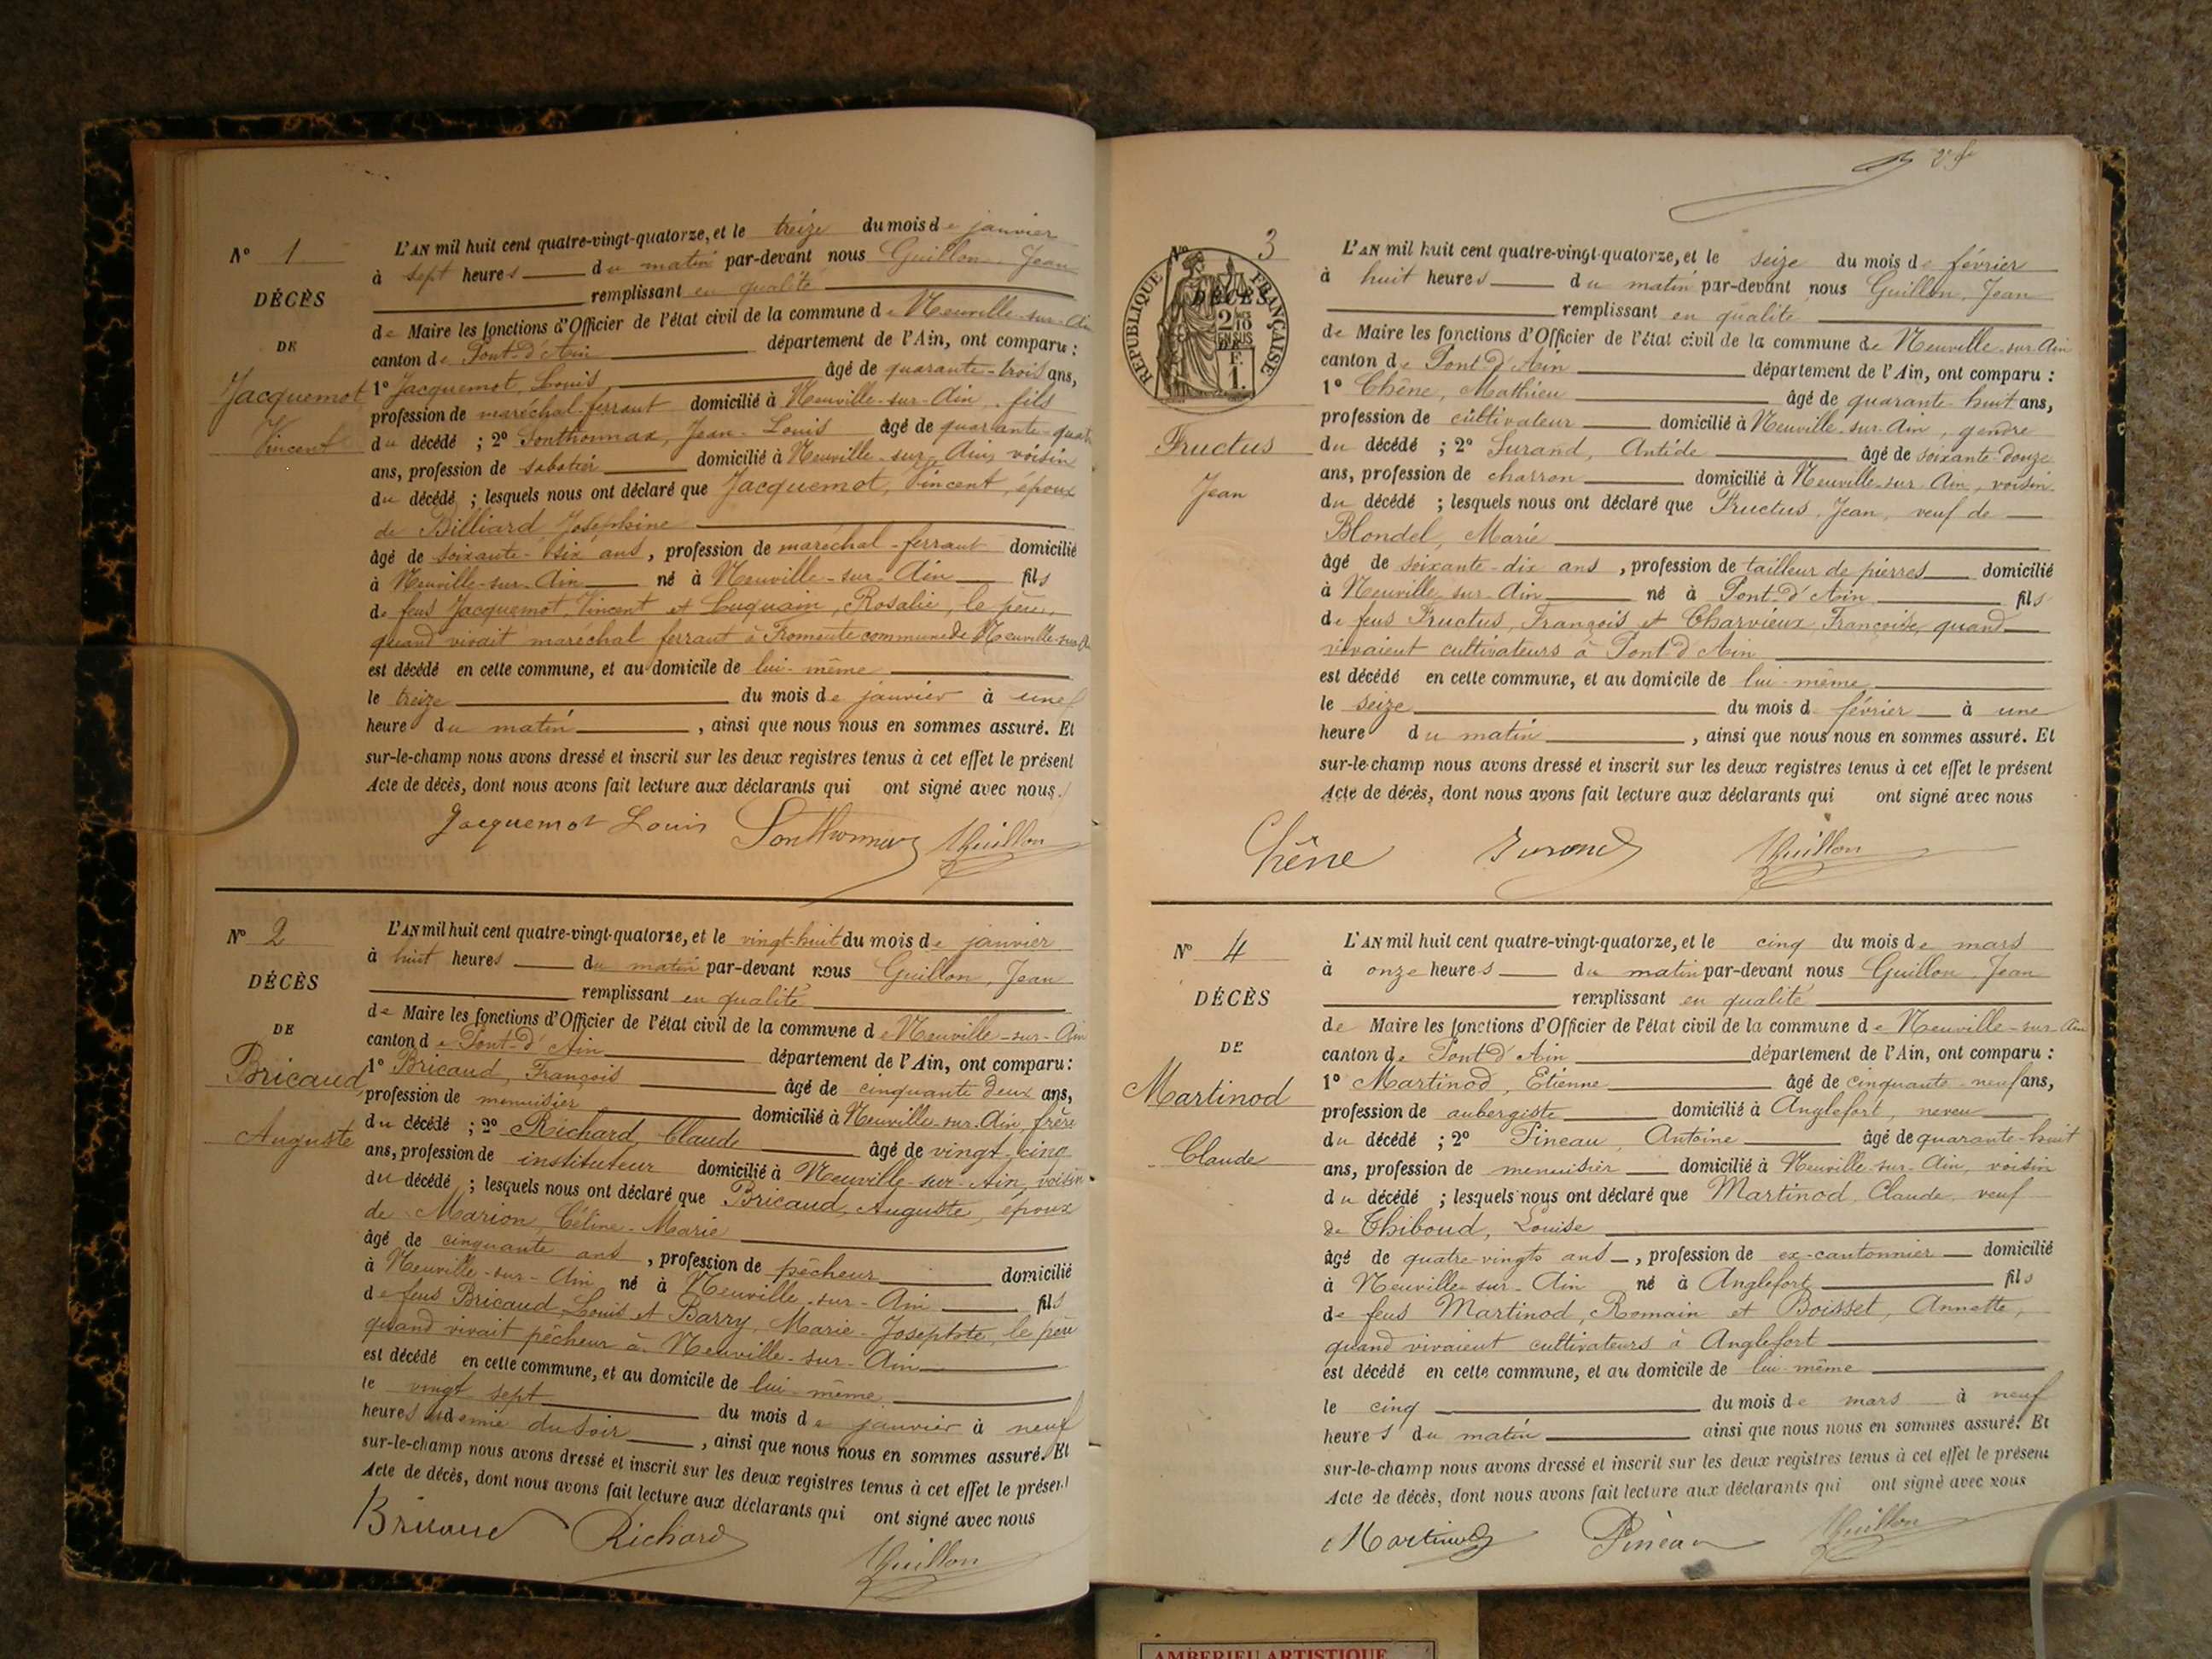 N° 1
DÉCÈS
DE
Jacquemot
Vincent
L'AN mil huit cent quatre-vingt-quatorze, et le treize du mois de janvier
à sept heures du matin par-devant nous Guillon, Jean
remplissant en qualité
de Maire les fonctions d'Officier de l'état civil de la commune de Neuville-sur-Ain
canton de Pont-d'Ain département de l'Ain, ont comparu :
1° Jacquemot, Louis, âgé de quarante-trois ans,
profession de maréchal-ferrant domicilié à Neuville-sur-Ain, fils
du décédé ; 2° Sonthonnax, Jean-Louis âgé de quarante-quatre
ans, profession de sabotier domicilié à Neuville-sur-Ain, voisin
du décédé ; lesquels nous ont déclaré que Jacquemot, Vincent, époux
de Billiard, Joséphine
âgé de soixante-six ans, profession de maréchal-ferrant domicilié
à Neuville-sur-Ain né à Neuville-sur-Ain fils
de feus Jacquemot, Vincent et Cuquain, Rosalie, le père,
quand vivait maréchal ferrant à Fromente commune de Neuville-sur-A
est décédé en cette commune, et au domicile de lui-même
le treize du mois de janvier à une
heure du matin, ainsi que nous nous en sommes assuré. Et
sur-le-champ nous avons dressé et inscrit sur les deux registres tenus à cet effet le présent
Acte de décès, dont nous avons fait lecture aux déclarants qui ont signé avec nous.
Jacquemot Louis Sonthonnax Guillon
N° 2
DÉCÈS
DE
Bricaud,
Auguste
L'AN mil huit cent quatre-vingt-quatorze, et le vingt-huit du mois de janvier
à huit heures du matin par-devant nous Guillon, Jean
remplissant en qualité
de Maire les fonctions d'Officier de l'état civil de la commune de Neuville-sur-Ain
canton de Pont-d'Ain département de l'Ain, ont comparu :
1° Bricaud, François âgé de cinquante deux ans,
profession de menuisier domicilié à Neuville-sur-Ain, frère
du décédé ; 2° Richard, Claude âgé de vingt-cinq
ans, profession de instituteur domicilié à Neuville-sur-Ain, voisin
du décédé ; lesquels nous ont déclaré que Bricaud, Auguste, époux
de Marion, Céline-Marie
âgé de cinquante ans, profession de pêcheur domicilié
à Neuville-sur-Ain né à Neuville-sur-Ain fils
de feus Bricaud, Louis et Barry, Marie-Josephte, le père
quand vivait pêcheur à Neuville-sur-Ain
est décédé en cette commune, et au domicile de lui-même
le vingt sept du mois de janvier à neuf
heures et demie du soir, ainsi que nous nous en sommes assuré. Et
sur-le-champ nous avons dressé et inscrit sur les deux registres tenus à cet effet le présent
Acte de décès, dont nous avons fait lecture aux déclarants qui ont signé avec nous
Bricaud Richard
Guillon
2e
N° 3
RÉPUBLIQUE FRANÇAISE
DÉCÈS
2/10
EN SUS
F.
1.
Fructus
Jean
L'AN mil huit cent quatre-vingt-quatorze, et le seize du mois de février
à huit heures du matin par-devant nous Guillon, Jean
remplissant en qualité
de Maire les fonctions d'Officier de l'état civil de la commune de Neuville-sur-Ain
canton de Pont d'Ain département de l'Ain, ont comparu :
1° Chêne, Mathieu âgé de quarante-huit ans,
profession de cultivateur domicilié à Neuville-sur-Ain, gendre
du décédé ; 2° Surand, Antide âgé de soixante-douze
ans, profession de charron domicilié à Neuville-sur-Ain, voisin
du décédé ; lesquels nous ont déclaré que Fructus, Jean, veuf de
Blondel, Marie
âgé de soixante-dix ans, profession de tailleur de pierres domicilié
à Neuville-sur-Ain né à Pont-d'Ain fils
de feus Fructus, François et Charvieux, Françoise, quand
vivaient cultivateurs à Pont-d'Ain
est décédé en cette commune, et au domicile de lui-même
le seize du mois d février à une
heure du matin, ainsi que nous nous en sommes assuré. Et
sur-le-champ nous avons dressé et inscrit sur les deux registres tenus à cet effet le présent
Acte de décès, dont nous avons fait lecture aux déclarants qui ont signé avec nous
Chêne Surand Guillon
N° 4
DÉCÈS
DE
Martinod
Claude
L'AN mil huit cent quatre-vingt-quatorze, et le cinq du mois de mars
à onze heures du matin par-devant nous Guillon, Jean
remplissant en qualité
de Maire les fonctions d'Officier de l'état civil de la commune de Neuville-sur-Ain
canton de Pont d'Ain département de l'Ain, ont comparu :
1° Martinod, Etienne âgé de cinquante-neuf ans,
profession de aubergiste domicilié à Anglefort, neveu
du décédé ; 2° Pineau, Antoine âgé de quarante-huit
ans, profession de menuisier domicilié à Neuville-sur-Ain, voisin
du décédé ; lesquels nous ont déclaré que Martinod, Claude, veuf
de Thiboud, Louise
âgé de quatre-vingts ans, profession de ex-cantonnier domicilié
à Neuville-sur-Ain né à Anglefort fils
de feus Martinod, Romain et Boisset, Annette,
quand vivaient cultivateurs à Anglefort
est décédé en cette commune, et au domicile de lui-même
le cinq du mois de mars à neuf
heures du matin ainsi que nous nous en sommes assuré. Et
sur-le-champ nous avons dressé et inscrit sur les deux registres tenus à cet effet le présent
Acte de décès, dont nous avons fait lecture aux déclarants qui ont signé avec nous
Martinod Pineau Guillon
AMBERIEU ARTISTIQUE